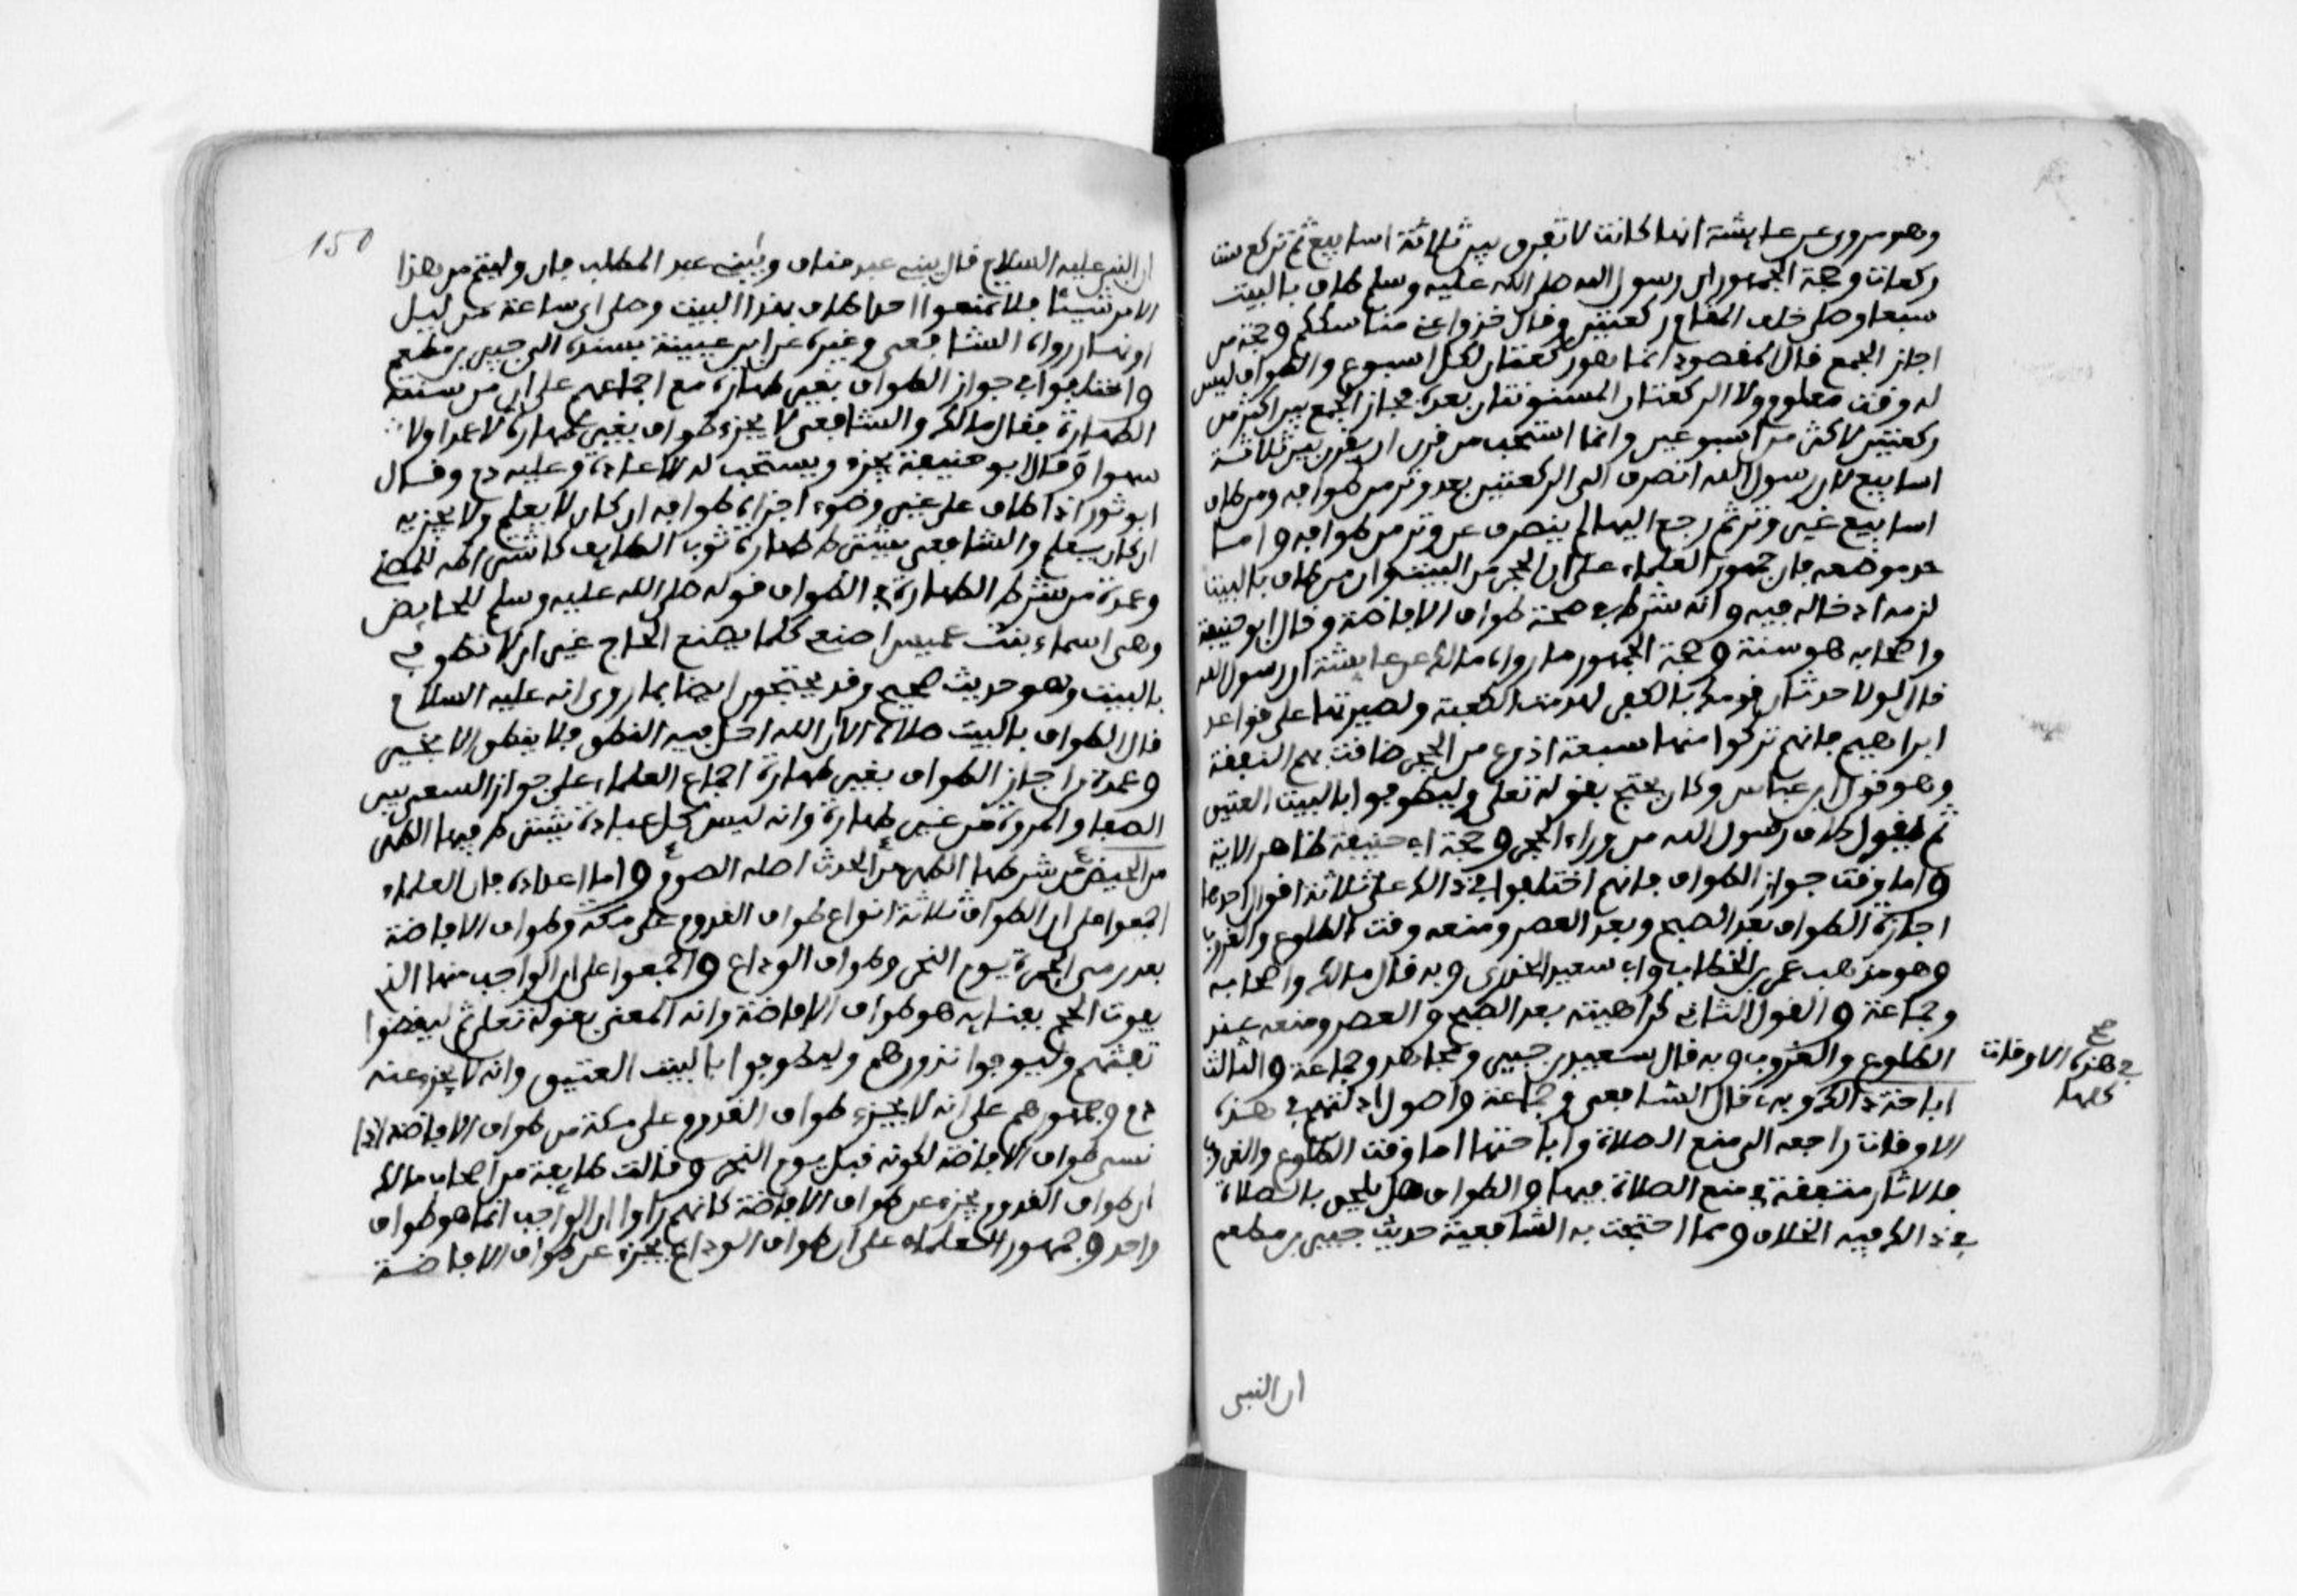 وهو مروى عن عايشة انها كانت لا تفرق بين ثلاثة اسابيع ثم تركع ست
ركعات وحجة الجمهور ان رسول الله صلى الله عليه وسلم طاف بالبيت
سبعا وصلى خلف المقام ركعتين وقال خذوا عنى مناسككم وحجة من
اجاز الجمع قال المقصود انما هو ركعتان لكل اسبوع والطواف ليس
له وقت معلوم ولا الركعتان المسنونتان بعده فجاز الجمع بين اكثر من
ركعتين لاكثر من اسبوعين وانما استحب من فرق ان يفرق بين ثلاثة
اسابيع لان رسول الله انصرف الى الركعتين بعد وتر من طوافه ومن طاف
اسابيع غير وتر ثم رجع اليها لم ينصرف عن وتر من طوافه واما
حد موضعه فان جمهور العلماء على ان الحجر من البيت وان من طاف بالبيت
لزمه ادخاله فيه وانه شرط في صحة طواف الافاضة وقال ابو حنيفة
واصحابه هو سنة وحجة الجمهور ما رواه مالك عن عايشة ان رسول الله
قال لولا حدثان قومك بالكفر لهدمت الكعبة ولصيرتها على قواعد
ابراهيم فانهم تركوا منها سبعة اذرع من الحجر ضاقت بهم النفقة
وهو قول ابن عباس وكان يحتج بقوله تعلى وليطوفوا بالبيت العتيق
ثم يقول طاف رسول الله من وراء الحجر وحجة ابى حنيفة ظاهر الاية
واما وقت جواز الطواف فانهم اختلفوا في ذالك على ثلاثة اقوال احدها
اجازة الطواف بعد الصبح وبعد العصر ومنعه وقت الطلوع والغروب
وهو مذهب عمر بن الخطاب وابى سعيد الخدرى وبه قال مالك واصحابه
وجماعة والقول الثانى كراهيته بعد الصبح والعصر ومنعه عند
الطلوع والغروب وبه قال سعيد بن جبير ومجاهد وجماعة والثالث
اباحة ذالك وبه قال الشافعى وجماعة واصول ادلتهم في هذه
الاوقات راجعه الى منع الصلاة واباحتها اما وقت الطلوع والغروب
فالاثار متفقة في منع الصلاة فيها والطواف هل يلحق بالصلاة
في ذالك فيه الخلاف ومما احتجت به الشافعية حديث جبير بن مطعم
صح
في هذه الاوقات
كلها
ان النبى
150
ان النبى عليه السلام قال يبنى عبد مناف ويبنى عبد المطلب فان وليتم من هذا
الامر شيئا فلا تمنعوا احدا طاف بهذا البيت وصلى اى ساعة من ليل
او نهار رواه الشافعى وغيره عن ابن عيينة بسنده الى جبير بن مطعم
واختلفوا في جواز الطواف بغير طهارة مع اجماعهم على ان من سنته
الطهارة فقال مالك والشافعى لا يجزء طواف بغير طهارة لا عمدا ولا
سهوا وقال ابو حنيفة يجزء ويستحب له الاعادة وعليه دم وقال
ابو ثور اذا طاف على غير وضوء اجزاه طوافه ان كان لا يعلم ولا يجزيه
ان كان يعلم والشافعى يشترط طهارة ثوب الطايف كاشتراطه للمصلى
وعمدة من شرط الطهارة في الطواف قوله صلى الله عليه وسلم للحايض
وهى اسماء بنت عميس اصنع كلما يصنع الحاج غير ان لا تطوفى
بالبيت وهو حديث صحيح وقد يحتجون ايضا بما روى انه عليه السلام
قال الطواف بالبيت صلاة الا ان الله احل فيه النطق فلا ينطق الا بخير
وعمدة من اجاز الطواف بغير طهارة اجماع العلماء على جواز السعى بين
الصفا والمروة من غير طهارة وانه ليس كل عبادة يشترط فيها الطهر
من الحيض من شرطها الطهر من الحدث اصله الصوم واما اعداده فان العلماء
اجمعوا على ان الطواف ثلاثة انواع طواف القدوم على مكة وطواف الافاضة
بعد رمى الجمرة يوم النحر وطواف الوداع واجمعوا على ان الواجب منها الذى
يفوت الحج بفواته هو طواف الافاضة وانه المعنى بقوله تعلى ثم ليقضوا
تفثهم وليوفوا نذورهم وليطوفوا بالبيت العتيق وانه لا يجزء عنه
دم وجمهورهم على انه لا يجزء طواف القدوم على مكة من طواف الافاضة اذا
نسى طواف الافاضة لكونه قبل يوم النحر وقالت طايفة من اصحاب مالك
ان طواف القدوم يجزء عن طواف الافاضة كانهم راوا ان الواجب انما هو طواف
واحد وجمهور العلماء على ان طواف الوداع يجزء عن طواف الافاضة